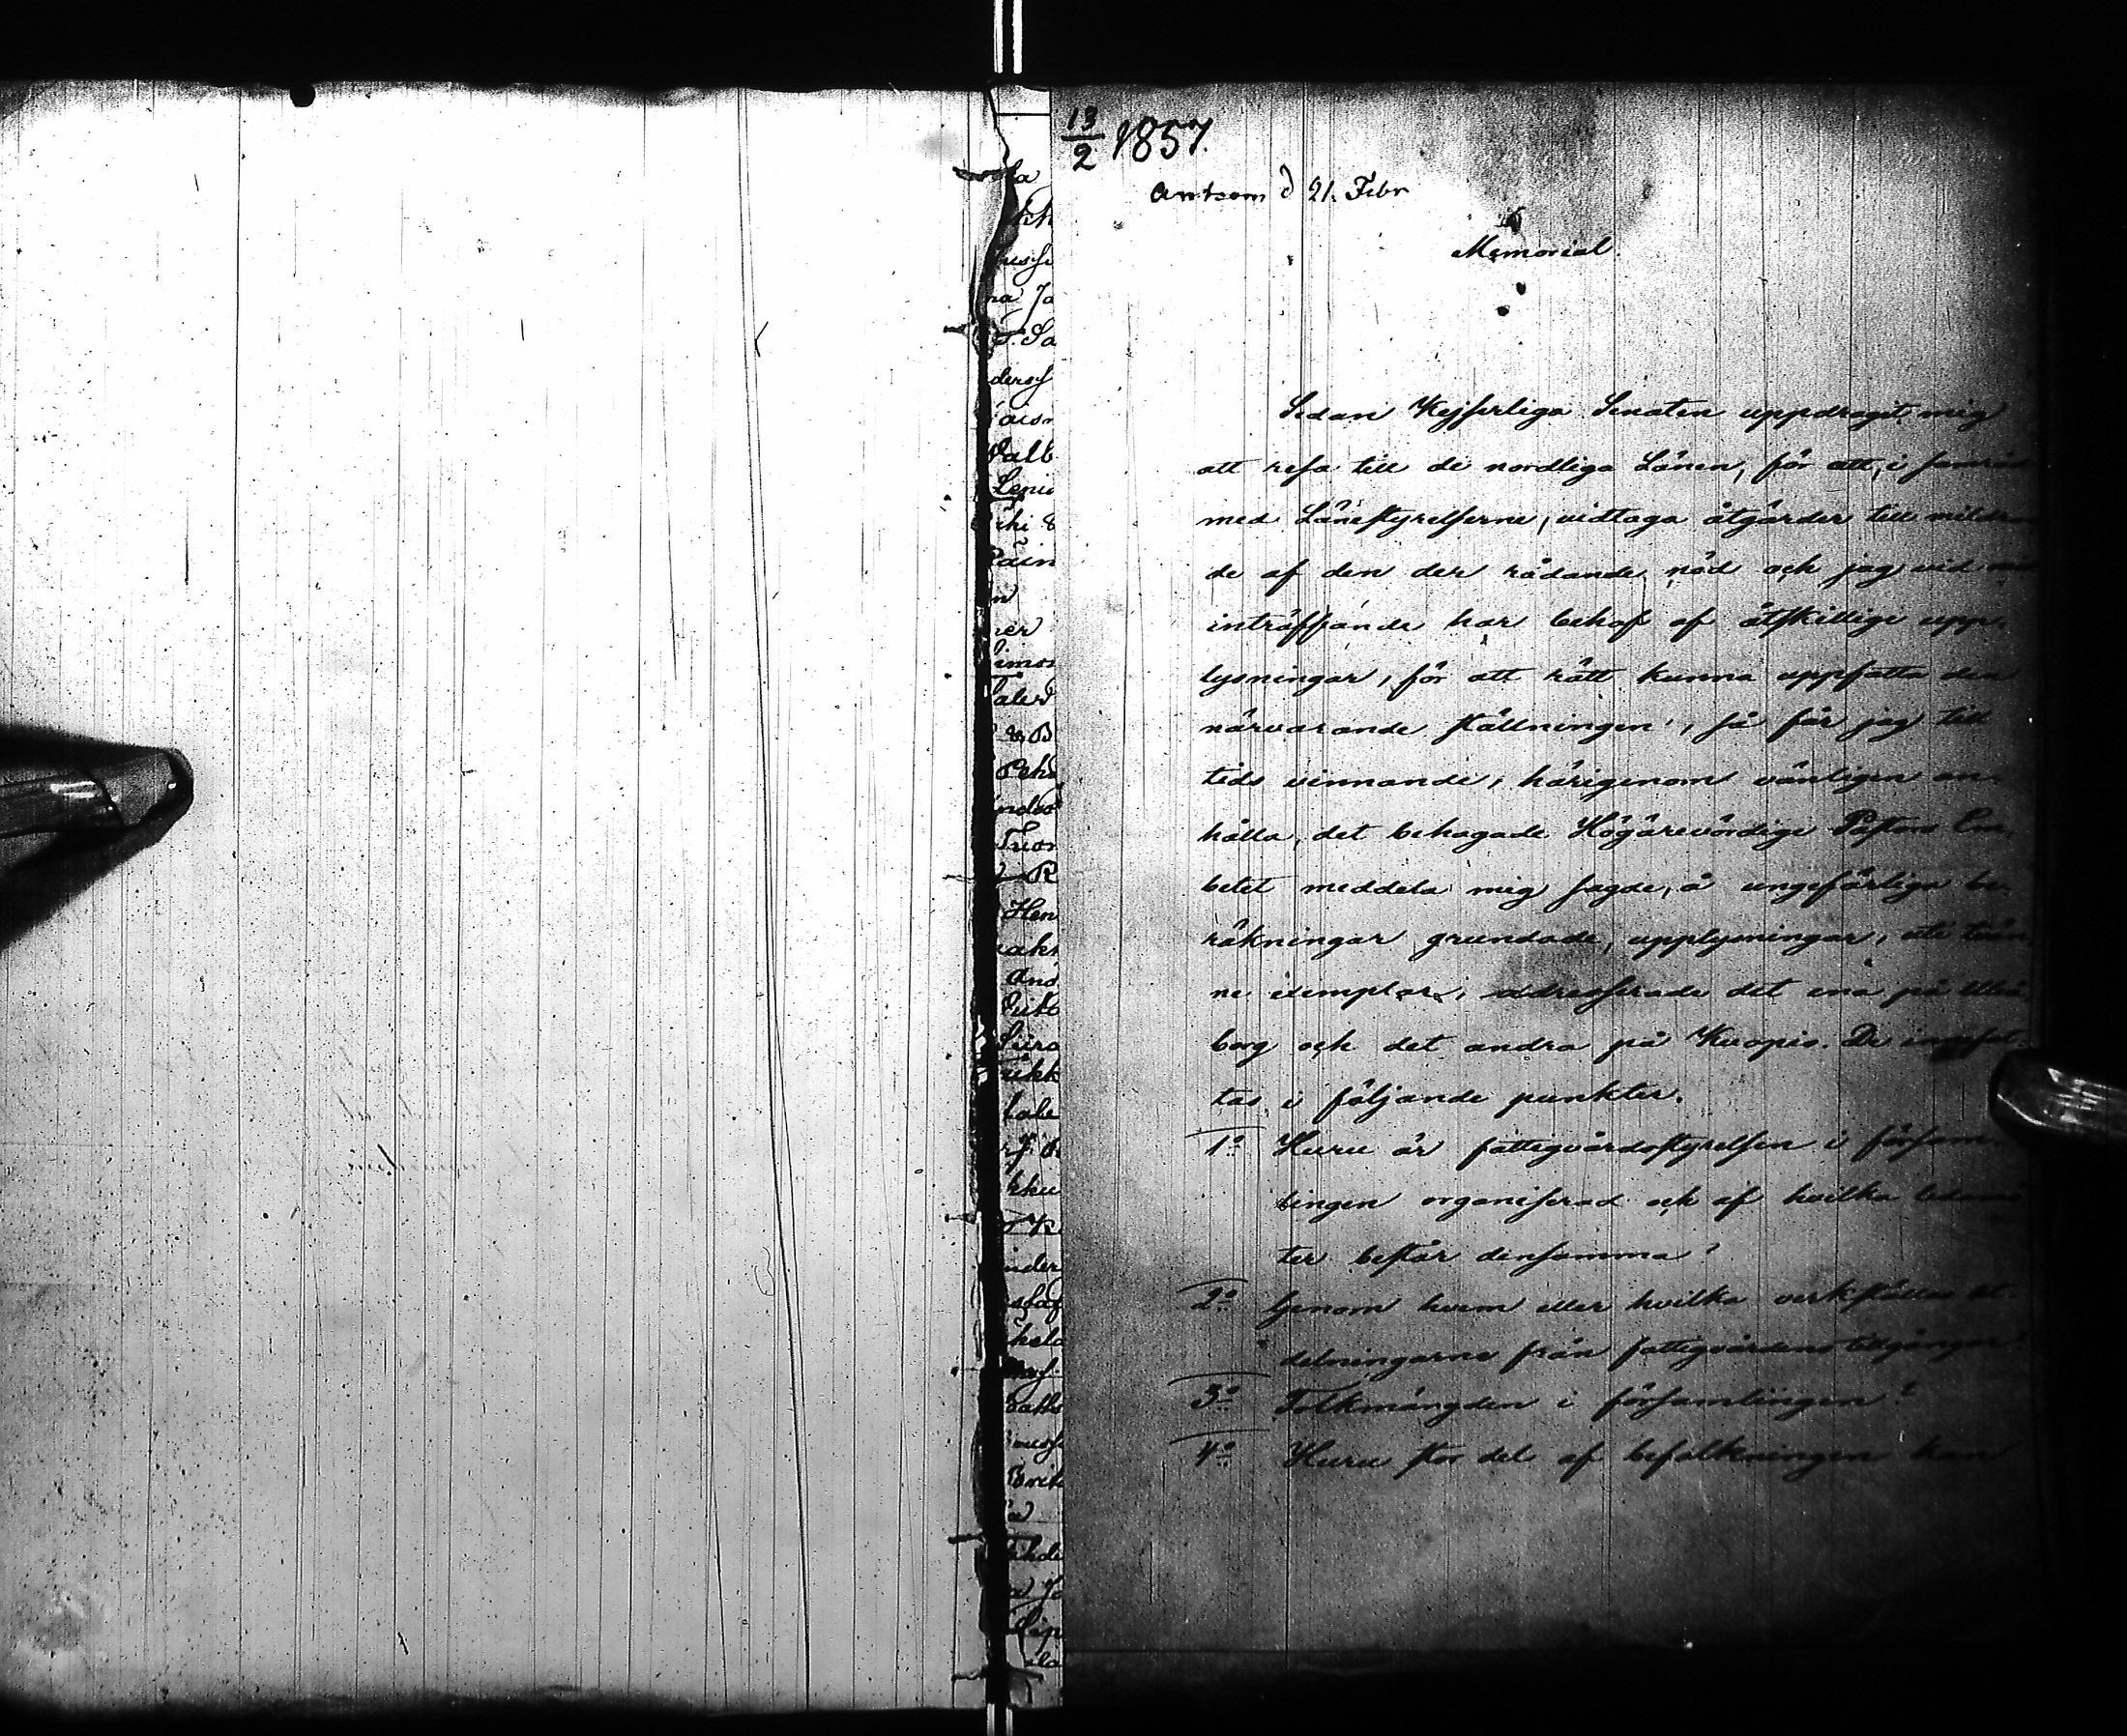 13/2 1857.
Ankom d 21. Febr
Memorial.
Sedan Kejserliga Senaten uppdragit mig
att resa till de nordliga Länen, för att, i samråd
med Länestyrelserne, vidtaga åtgärder till mildran
de af den der rådande nöd och jag vid mitt
inträffande har behof af åtskillige upp-
lysningar, för att rätt kunna uppfatta den
närvarande ställningen, så får jag till
tids vinnande, härigenom vänligen an-
hålla, det behagade Högärevördige Pastors Em-
betet meddela mig sagde, å ungefärliga be-
räkningar grundade, upplysningar, uti tvän
ne exemplar, addresserade det ena på Uleå
borg och det andra på Kuopio. De innefat-
tas i följande punkter.
1o Huru är fattigvårdsstyrelsen i försam
lingen organiserad och af hvilka ledamö
ter består densamma?
2o Genom hvem eller hvilka verkställas ut-
delningarne från fattigvårdens tillgångar?
3o Folkmängden i församlingen?
4o Huru stor del af befolkningen kan